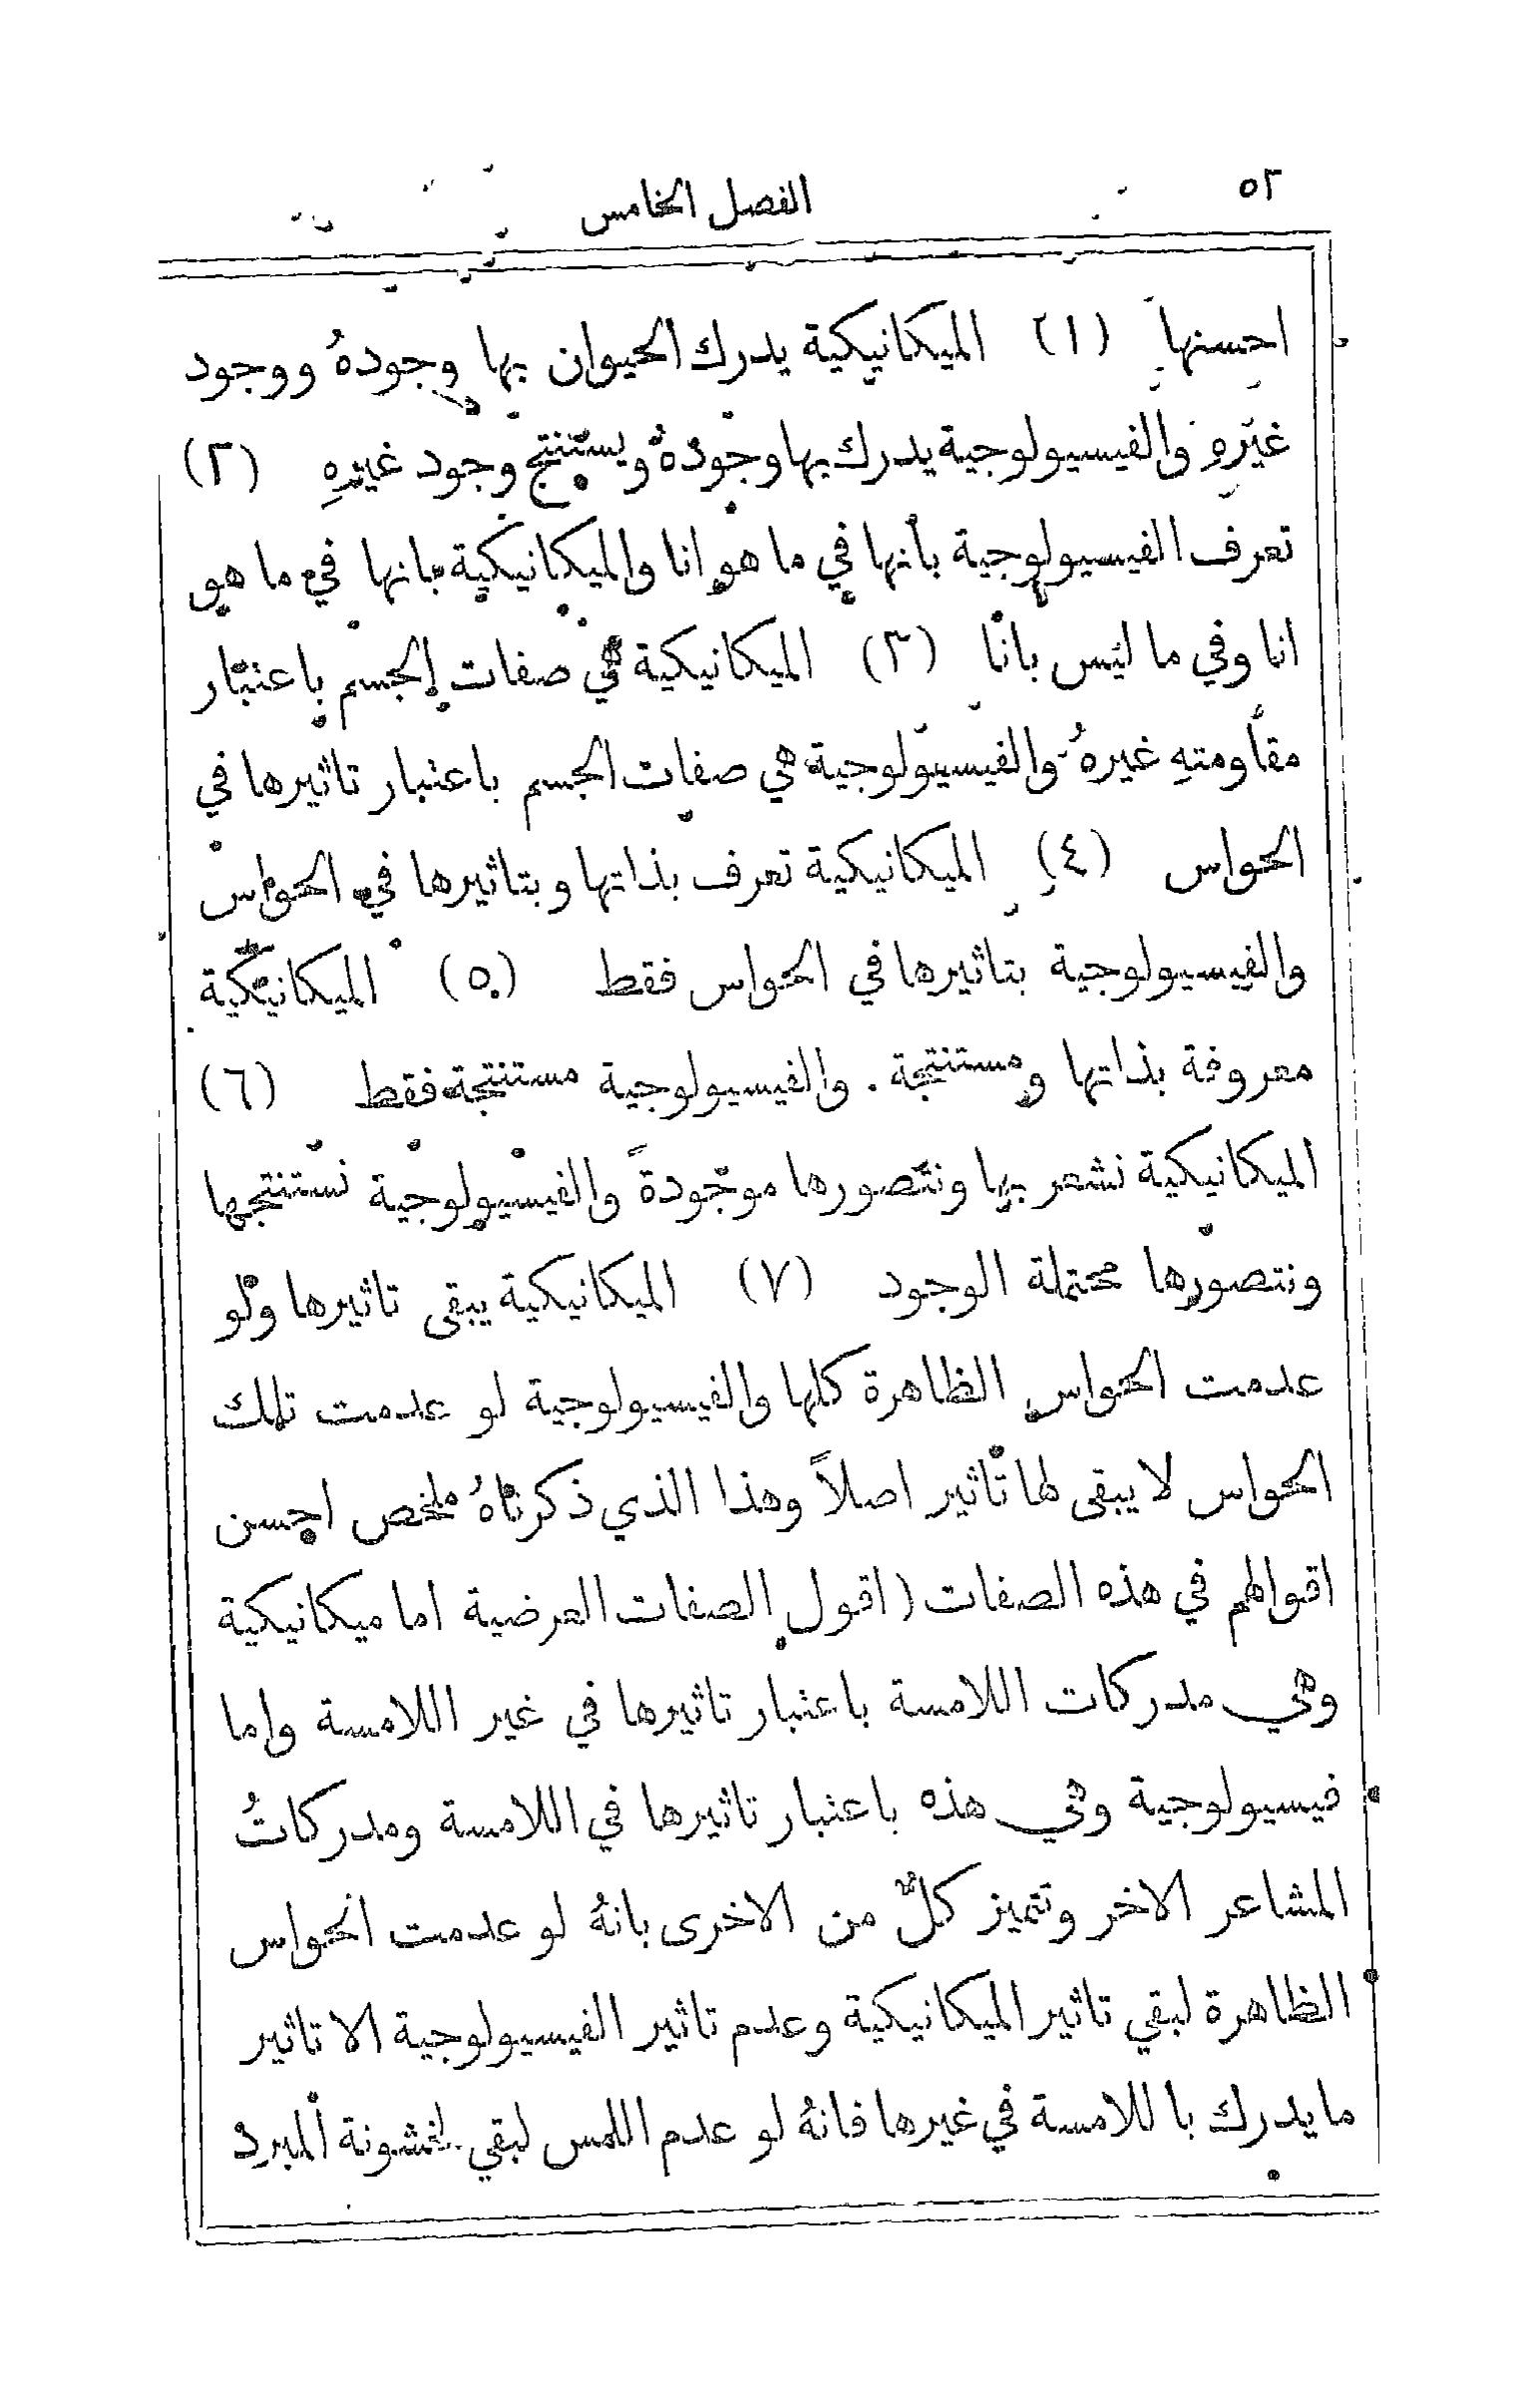 ٥٢
الفصل الخامس
احسنها (١) الميكانيكية يدرك الحيوان بها وجودهُ ووجود
غيرهِ والفيسيولوجية يدرك بها وجودهُ ويستنتج وجود غيرهِ (٢)
تعرف الفيسيولوجية بأنها في ما هو انا والميكانيكية بانها في ما هو
انا وفي ما ليس بانا (٣) الميكانيكية هي صفات الجسم باعتبار
مقاومتهِ غيرهُ والفيسيولوجية هي صفات الجسم باعتبار تاثيرها في
الحواس (٤) الميكانيكية تعرف بذاتها وبتاثيرها في الحواس
والفيسيولوجية بتاثيرها في الحواس فقط (٥) الميكانيكية
معروفة بذاتها ومستنتجة . والفيسيولوجية مستنتجة فقط (٦)
الميكانيكية نشعر بها ونتصورها موجودةً والفيسيولوجية نستنتجها
ونتصورها محتملة الوجود (٧) الميكانيكية يبقى تاثيرها ولو
عدمت الحواس الظاهرة كلها والفيسيولوجية لو عدمت تلك
الحواس لا يبقى لها تاثير اصلاً وهذا الذي ذكرناهُ ملخص احسن
اقوالهم في هذه الصفات ( اقول الصفات العرضية اما ميكانيكية
وهي مدركات اللامسة باعتبار تاثيرها في غير اللامسة واما
فيسيولوجية وهي هذه باعتبار تاثيرها في اللامسة ومدركاتُ
المشاعر الاخر وتتميز كلٌّ من الاخرى بانهُ لو عدمت الحواس
الظاهرة لبقي تاثير الميكانيكية وعدم تاثير الفيسيولوجية الا تاثير
ما يدرك باللامسة في غيرها فانهُ لو عدم اللمس لبقي لخشونة المبرد